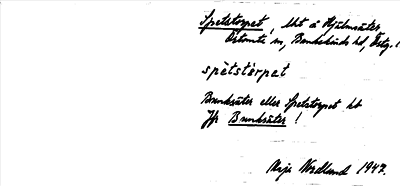 Spetstorpet, lht å Hjälmsäter
Östomta sn, Bankekinds hd, Östg.!
spètstòrpet
Brunksäter eller Spetstorpet kt
Jfr Brunksäter!
Maja Nordlund 1947.